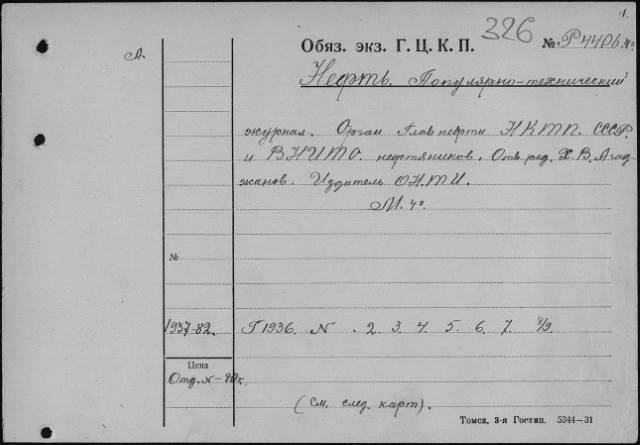 1.
326
Обяз. экз. Г. Ц. К. П. № Р4406 4°
А.
Нефть. Популярно-технический
журнал. Орган Главнефти НКТП. СССР.
и ВНИТО. нефтяников. Отв. ред. Х. В. Агад-
жанов. Издатель ОНТИ.
М. 4°.
№
1937-82. Г 1936. N . 2. 3. 4. 5. 6. 7. 8/9.
Цена
Отд. N – 80 к.
(См. след. карт).
Томск, 3-я Гостип. 5344—31